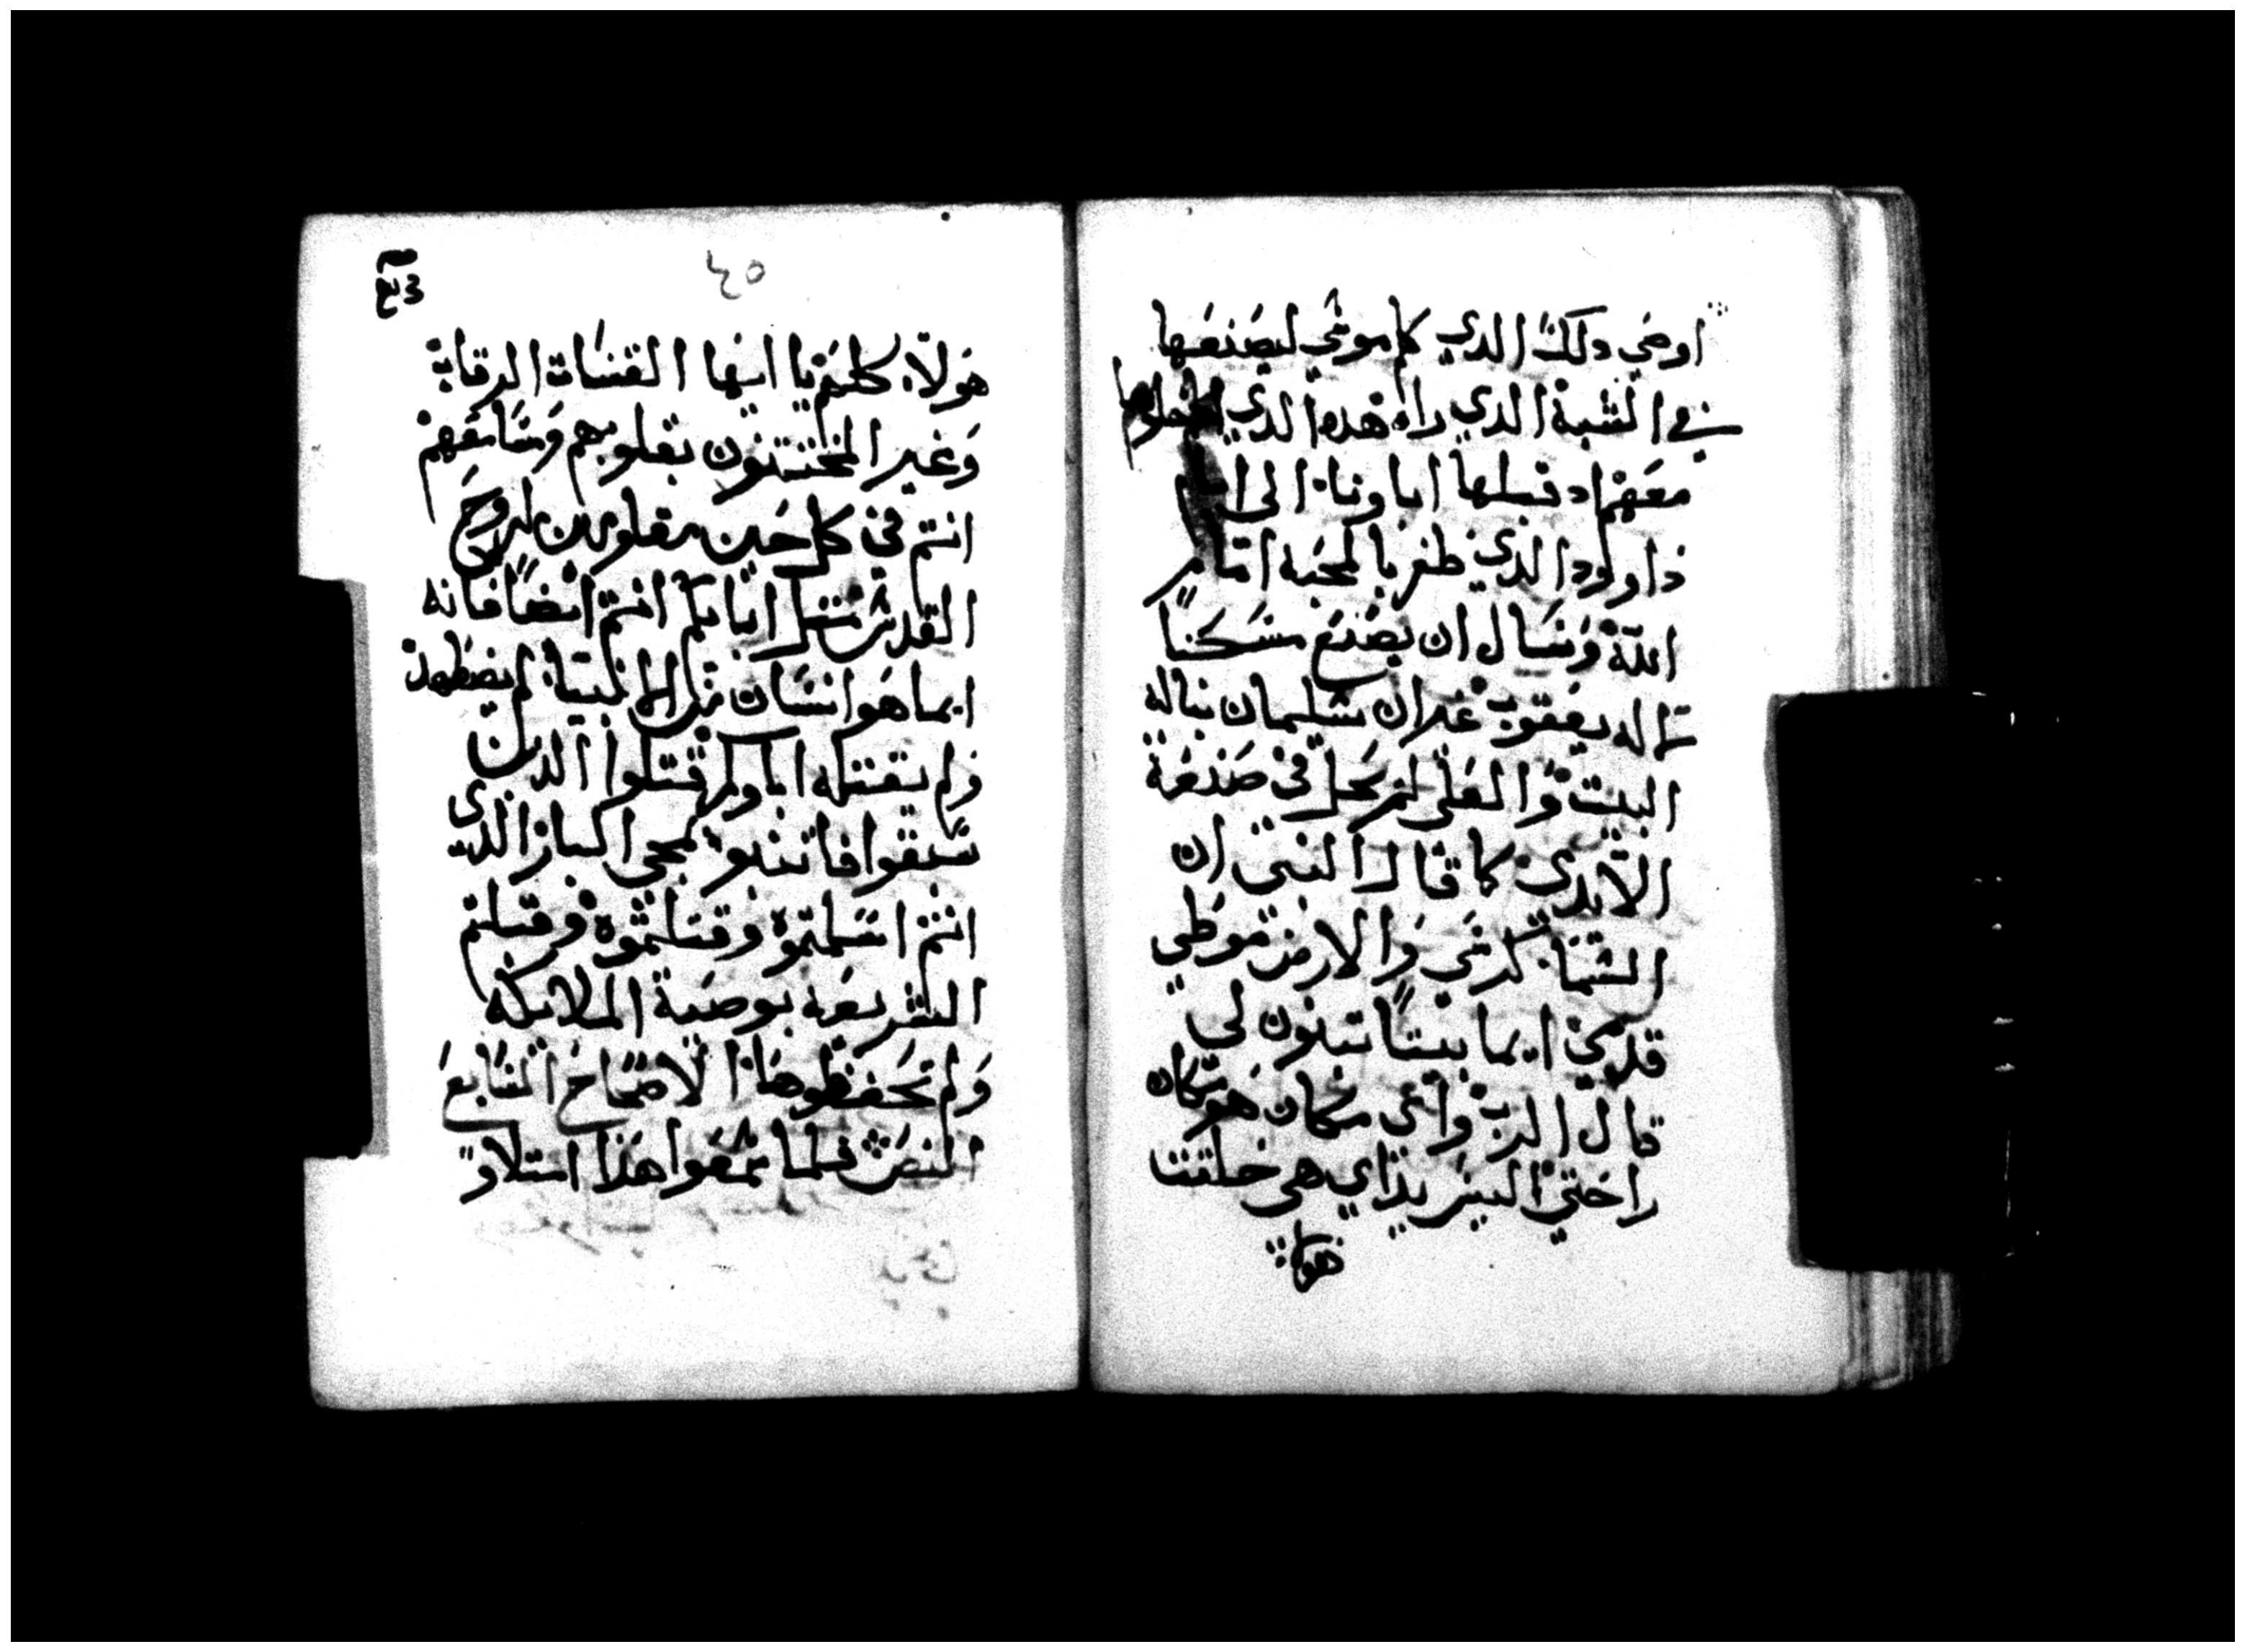 اوصي دلك الدي كلم موسي ليصنعها
في الشبه الدي راه هده الدي
معهم اد قبلها اباونا الي ايام
داوود الدي ظفر بالمحبه امام
الله وسال ان يصنع مسكنًا
لاله يعقوب غير ان سليمان بنا له
البيت والعلي لم يحل في صنعة
الايدي كما قال النبي ان
السما كرسي والارض موطي
قدمي ايما بيتًا تبنون لي
قال الرب واي مكان هو مكان
راحتي اليس يداي هي خلقت
هولا
٤٥
هولا كلهم يا ايها القساة الرقاب
وغير المختتنون بقلوبهم ومسامعهم
انتم في كل حين مقاومين لروح
القدس مثل ابايكم انتم ايضًا فانه
ايما هو انسان من الانبيا لم يضطهد
ولم يقتله اباوكم قتلوا الدين
سبقوا فانبوا بمجي البار الدي
انتم اسلمتموه وقتلتموه وقبلتم
الشريعه بوصية الملايكه
ولم تحفظوها الاصحاح السابع
النص فلما سمعوا هذا امتلاو